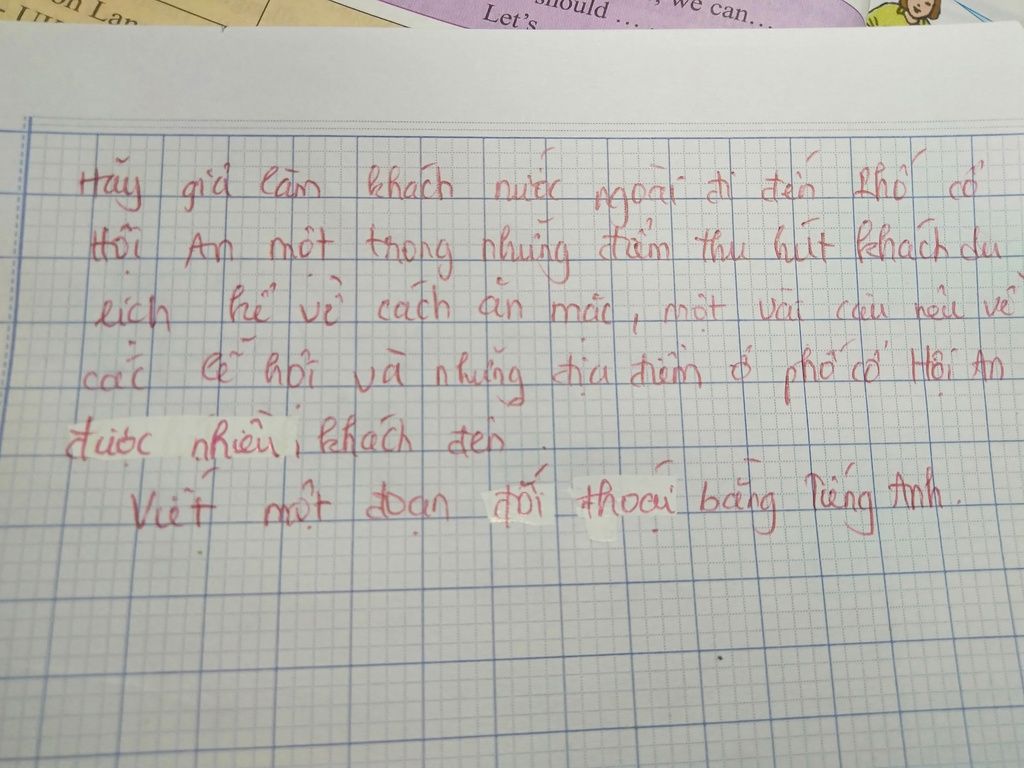 on Lan
Let's
should ...
, we can...
Hãy giả làm khách nước ngoài đi đến phố cổ
Hội An một trong những điểm thu hút khách du
lịch kể về cách ăn mặc, một vài câu nêu về
các lễ hội và những địa điểm ở phố cổ Hội An
được nhiều khách đến.
Viết một đoạn đối thoại bằng Tiếng Anh.